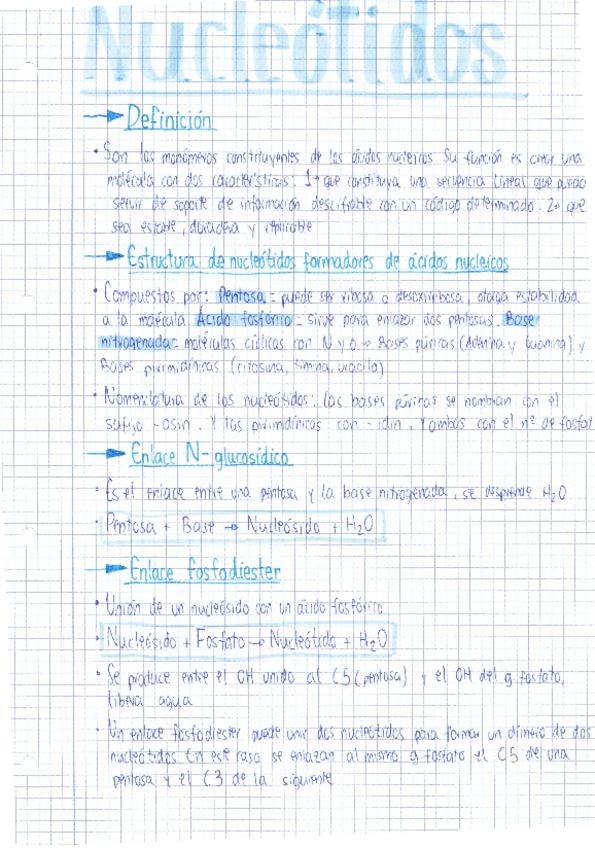 Nucleótidos
Definición
• Son los monómeros constituyentes de los ácidos nucleicos Su función es crear una
molécula con dos características: 1→ que constituya una secuencia lineal que pueda
servir de soporte de información descifrable con un código determinado. 2→ que
sea estable, duradera y replicable
Estructura de nucleótidos formadores de ácidos nucleicos
• Compuestos por: Pentosa = puede ser ribosa o desoxirribosa, otorga estabilidad
a la molécula. Ácido fosfórico = sirve para enlazar dos pentosas. Base
nitrogenada = moléculas cíclicas con N y O → Bases púricas (Adenina y Guanina) y
Bases pirimidínicas (citosina, timina, uracilo)
• Nomenclatura de los nucleótidos: las bases púricas se nombran con el
sufijo -osin. Y las pirimidínicas con -idin. Y ambos con el nº de fosfat
Enlace N-glucosídico
• Es el enlace entre una pentosa y la base nitrogenada, se desprende H2O
• Pentosa + Base → Nucleósido + H2O
Enlace fosfodiester
• Unión de un nucleósido con un ácido fosfórico
• Nucleósido + Fosfato → Nucleótido + H2O
• Se produce entre el OH unido al C5 (pentosa) y el OH del g. fosfato,
libera agua
• Un enlace fosfodiester puede unir dos nucleótidos para formar un dímero de dos
nucleótidos En este caso se enlazan al mismo g fosfato el C5 de una
pentosa y el C3 de la siguiente